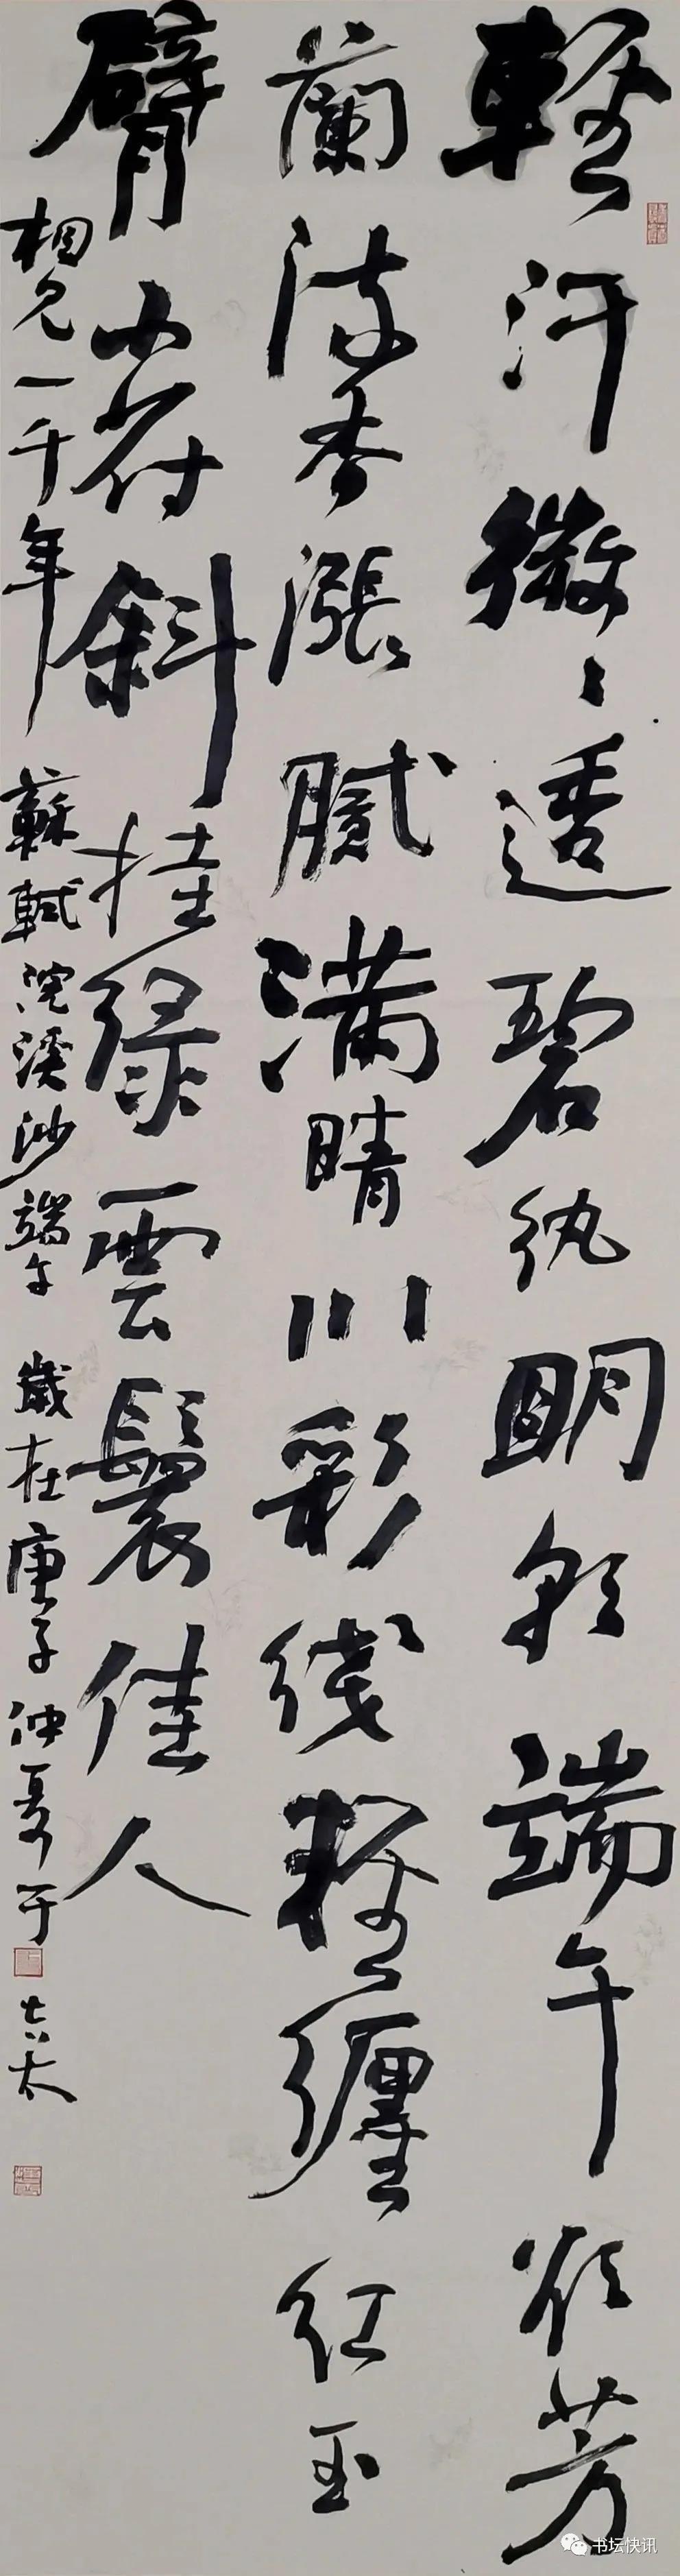 輕汗微〻透碧紈明朝端午欲芳
蘭流香漲膩滿晴川彩线輕纏紅玉
臂小符斜挂綠雲鬟佳人
相見一千年 蘇軾浣溪沙端午 歲在庚子仲夏于
太
书坛快讯